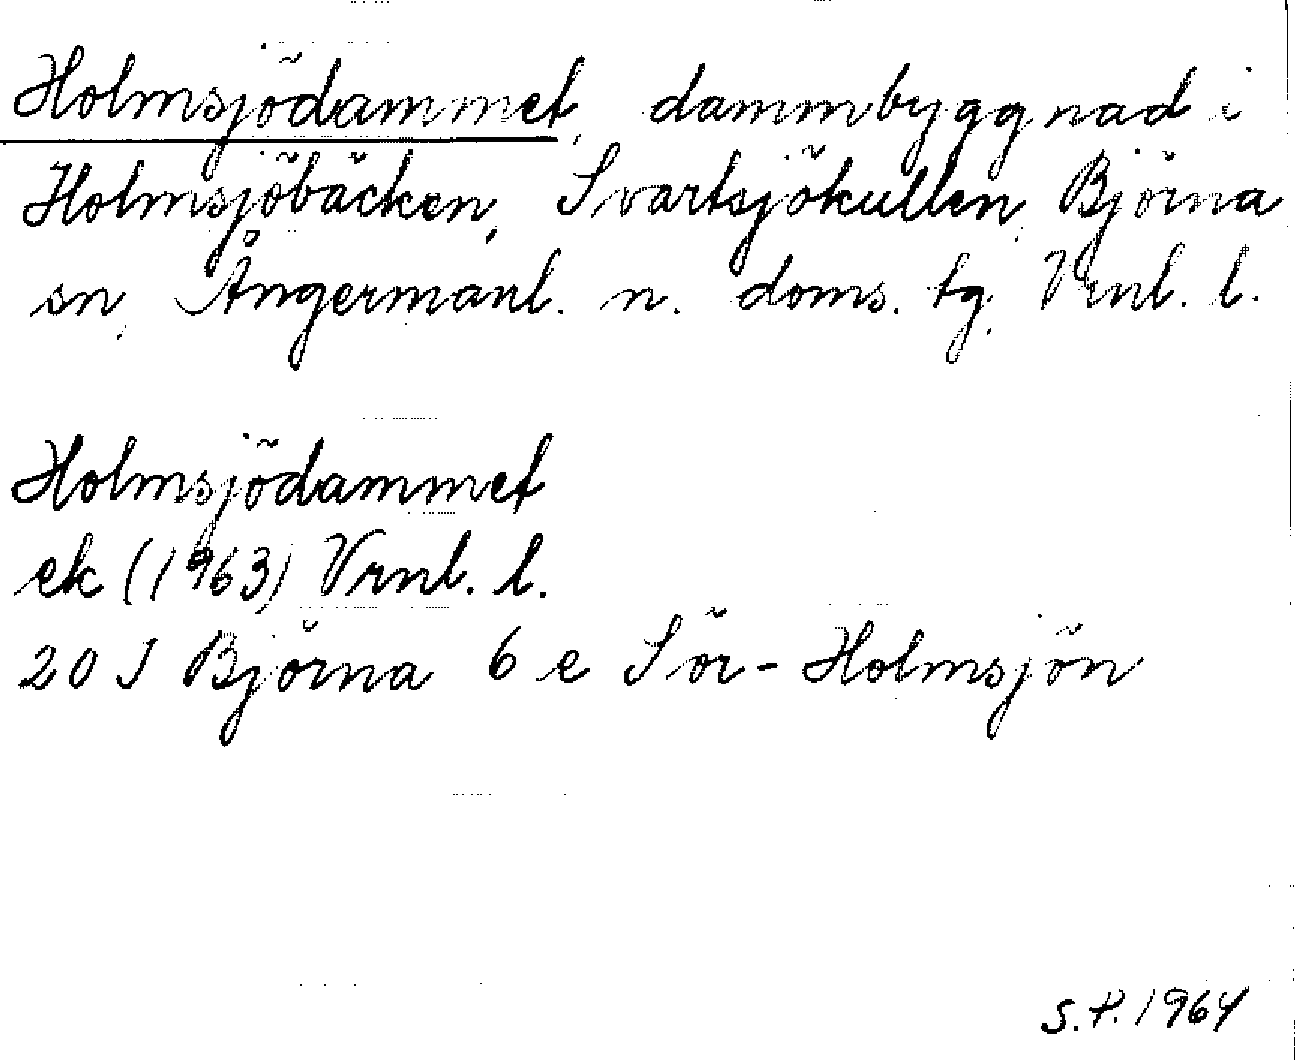 Holmsjödammet, dammbyggnad i
Holmsjöbäcken, Svartsjökullen, Björna
sn, Ångermanl. n. doms. tg, Vrnl. l.
Holmsjödammet
ek (1963) Vrnl. l.
20 J Björna 6 e Sör-Holmsjön
S.P. 1964